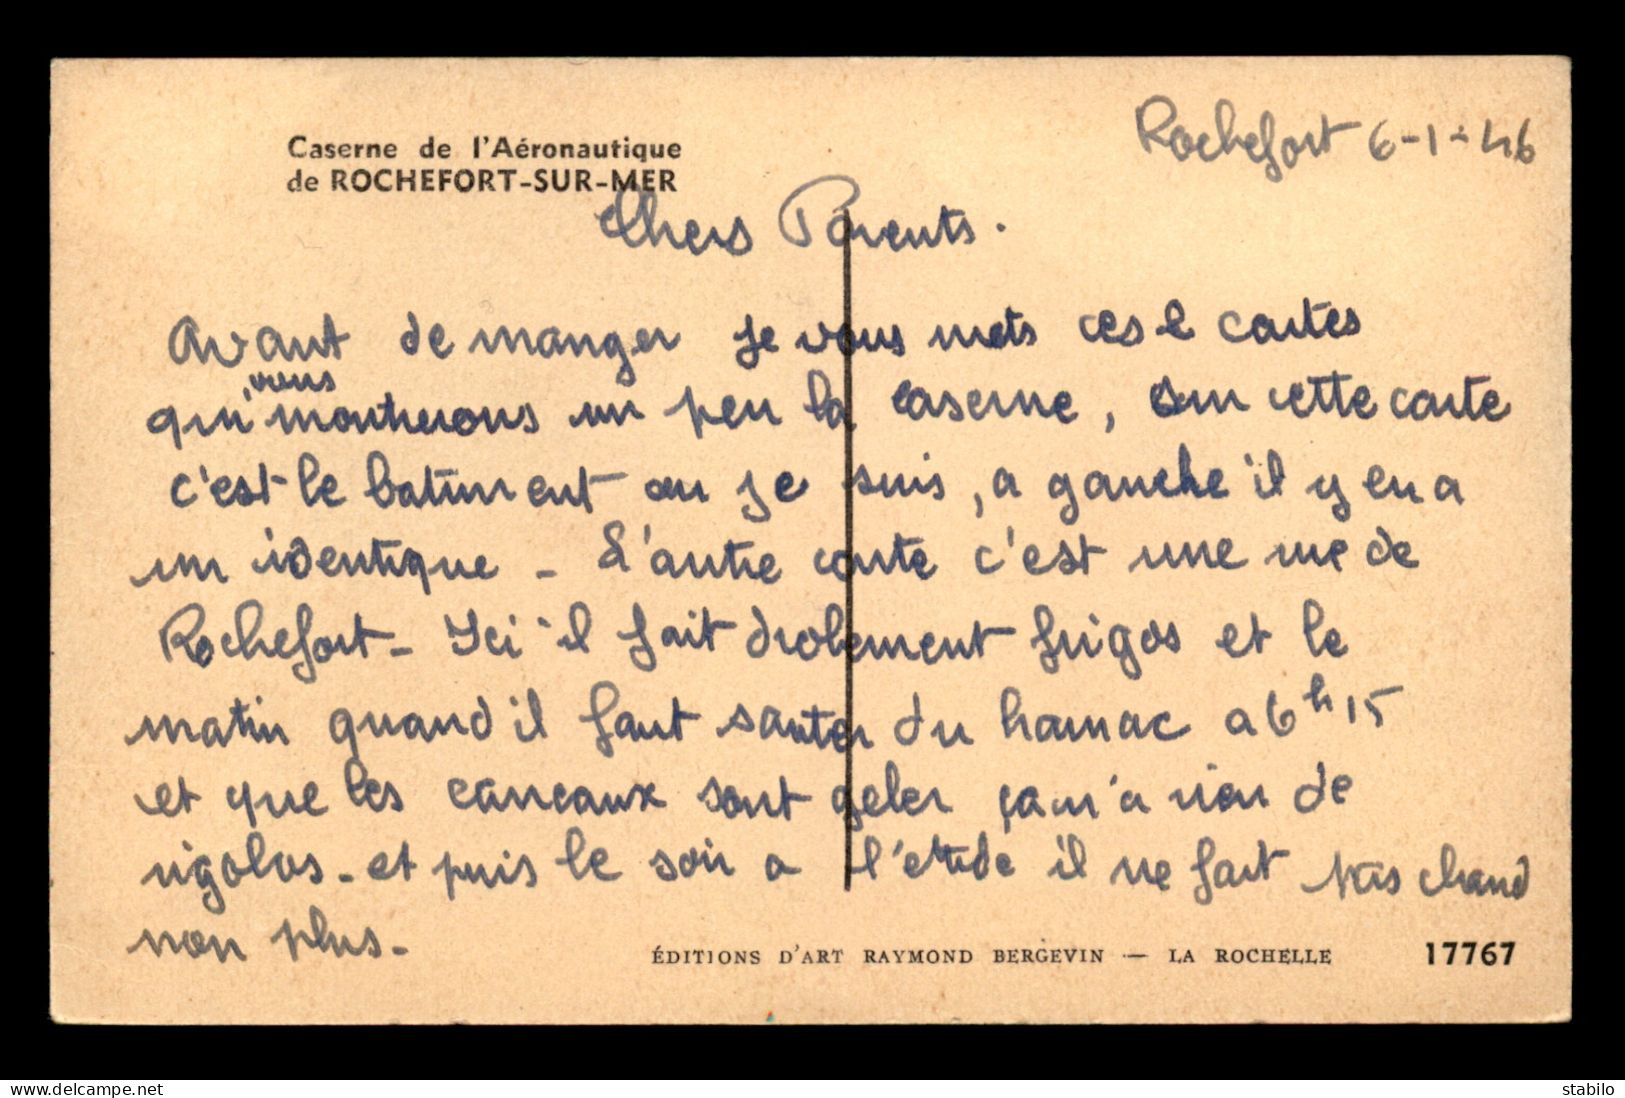 Caserne de l'Aéronautique
de ROCHEFORT-SUR-MER
Rochefort 6-1-46
Chers Parents.
Avant de manger je vous mets ces 2 cartes
qui vous montrerons un peu la caserne, sur cette carte
c'est le batiment ou je suis, a gauche il y en a
un identique - L'autre carte c'est une vue de
Rochefort - Ici il fait drolement frigos et le
matin quand il faut sauter du hamac a 6h15
et que les careaux sont geler ça n'a rien de
rigolos - et puis le soir a l'etude il ne fait pas chaud
non plus -
ÉDITIONS D'ART RAYMOND BERGEVIN — LA ROCHELLE 17767
Provided by delcampe.net
stabilo